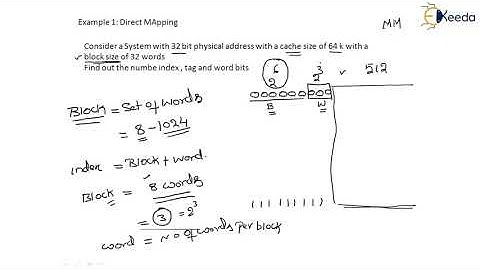 Example 1: Direct MApping
MM
Ekeeda
Consider a System with 32 bit physical address with a cache size of 64 k with a
block size of 32 words
Find out the numbe index , tag and word bits
2^6 2^3 512
Block = Set of words
= 8-1024
B W
index = Block + word.
Block = 8 words
= 3 = 2^3
word = no of words per block